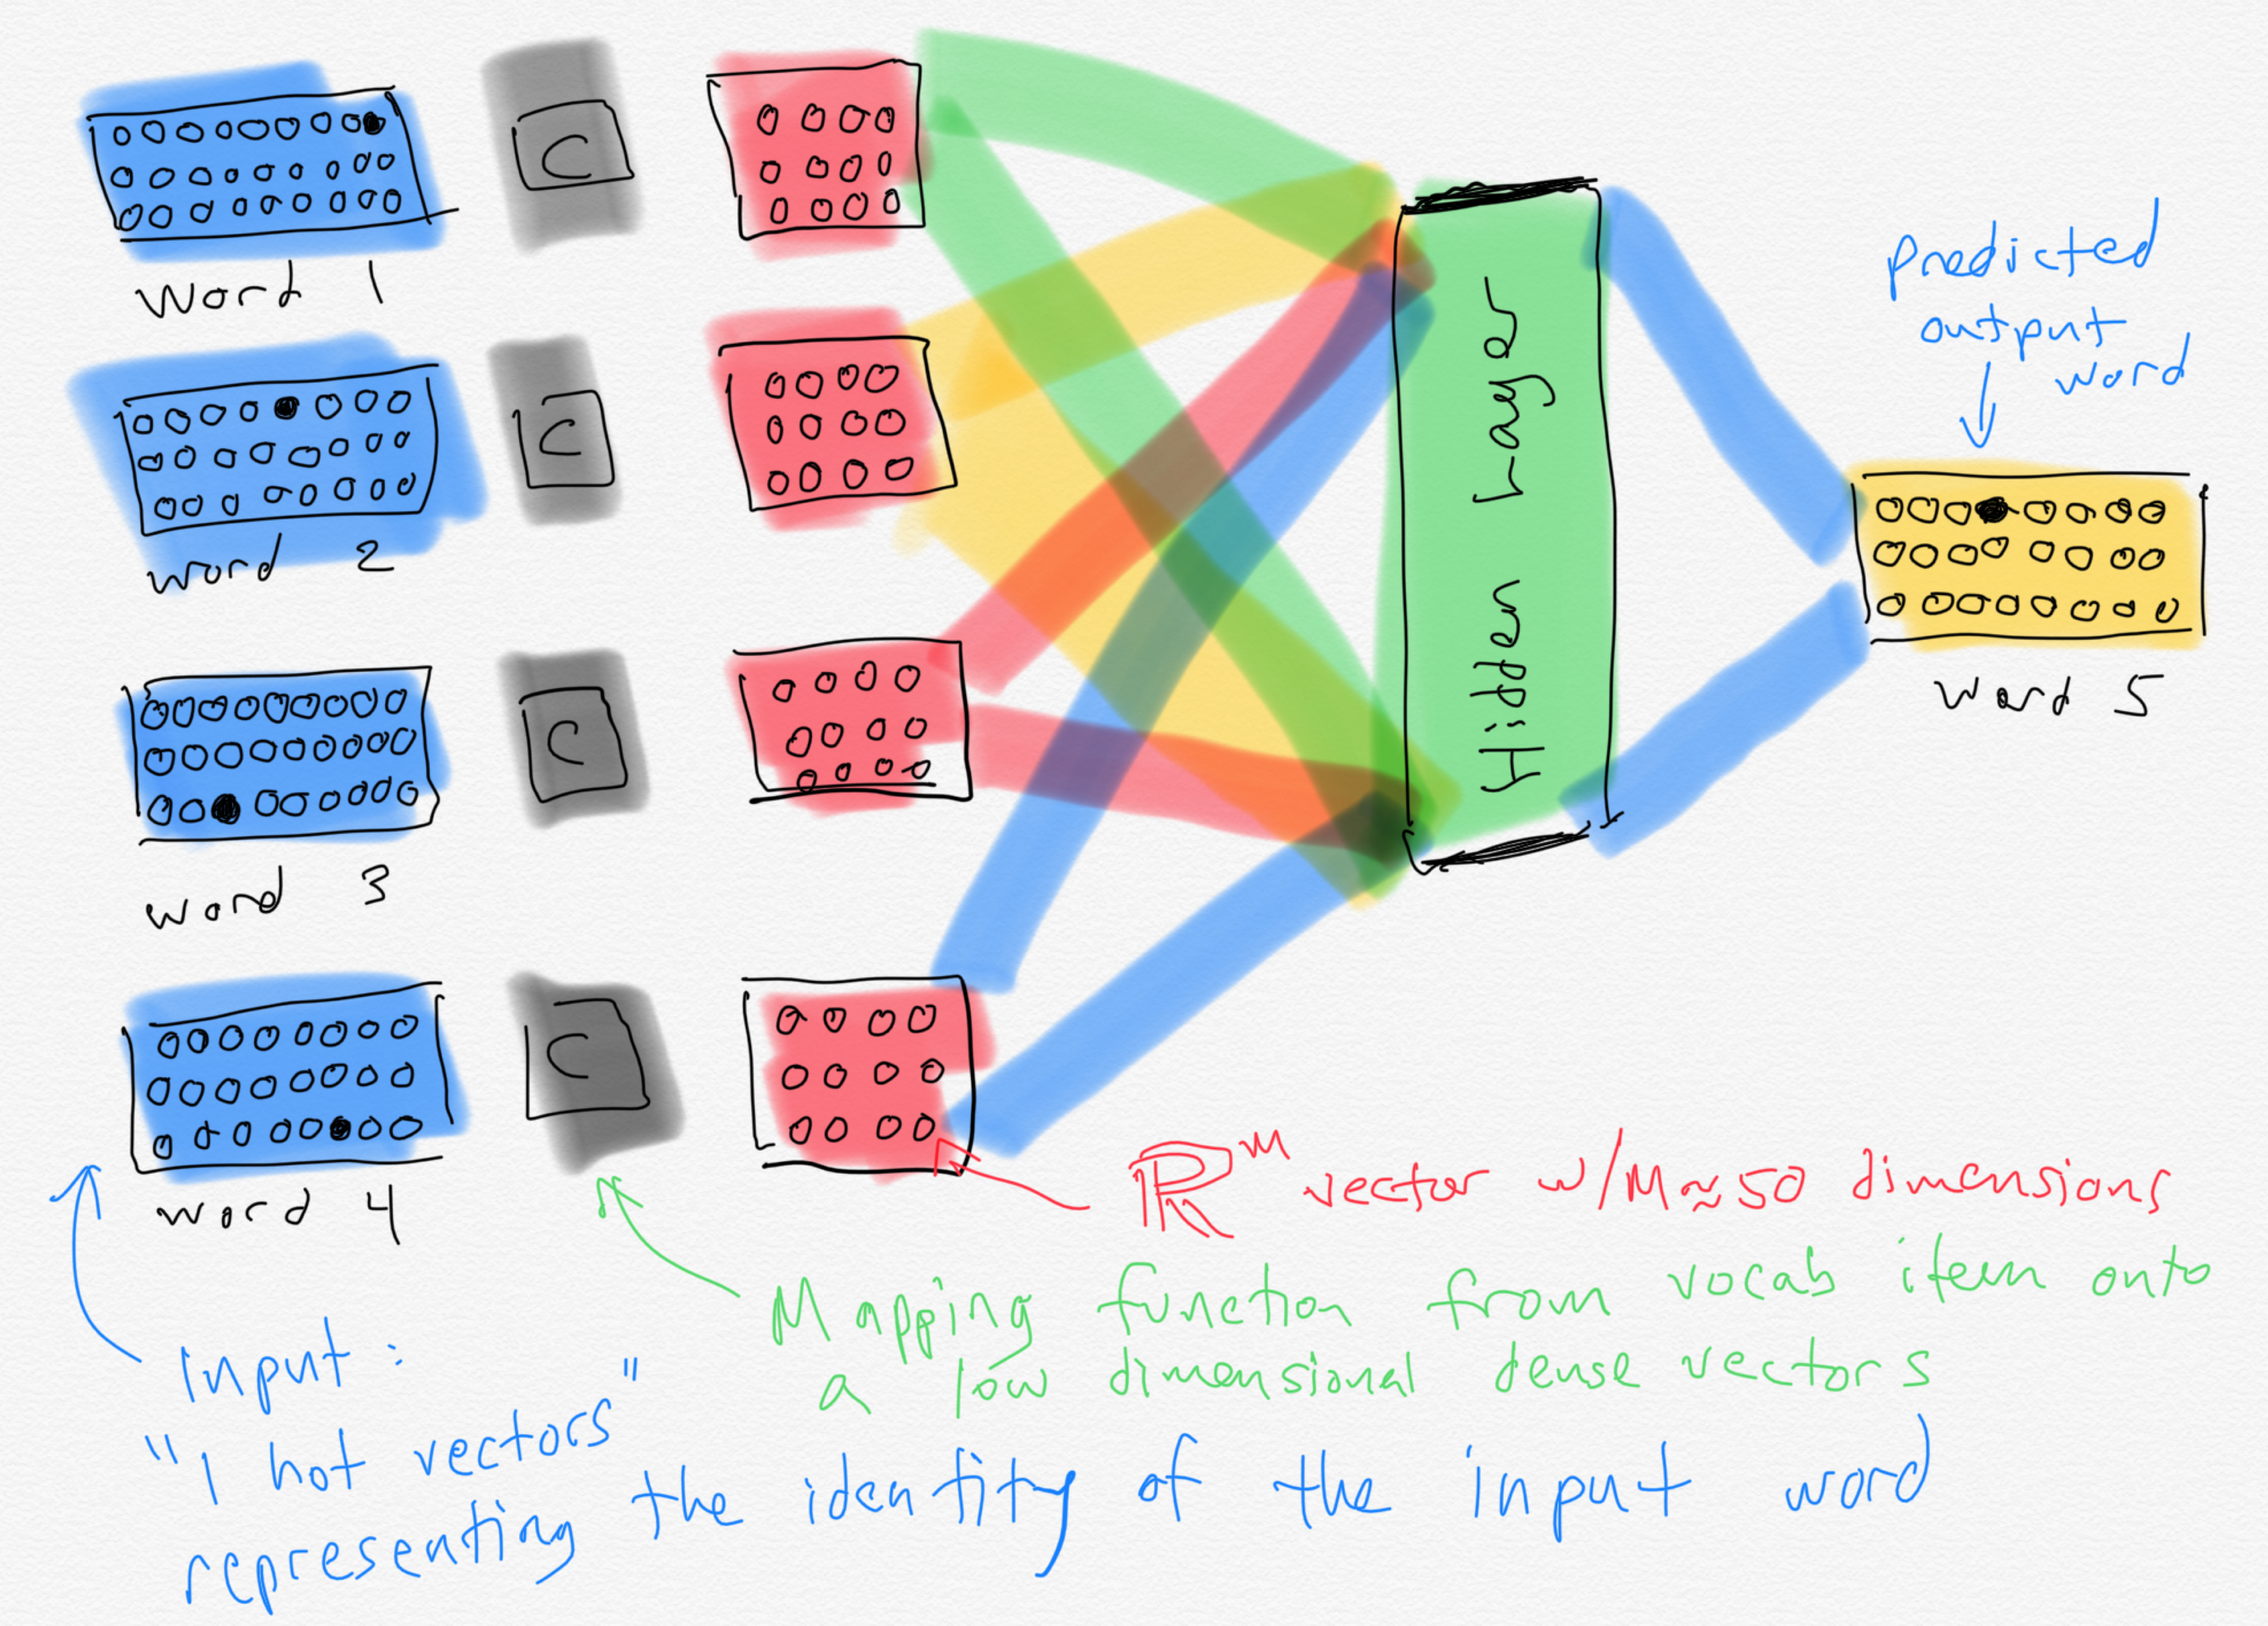 C
word 1
C
word 2
C
word 3
C
word 4
Hidden Layer
predicted
output
word
word 5
ℝᴹ vector w/M≈50 dimensions
Mapping function from vocab item onto
a low dimensional dense vectors
Input:
"1 hot vectors"
representing the identity of the input word